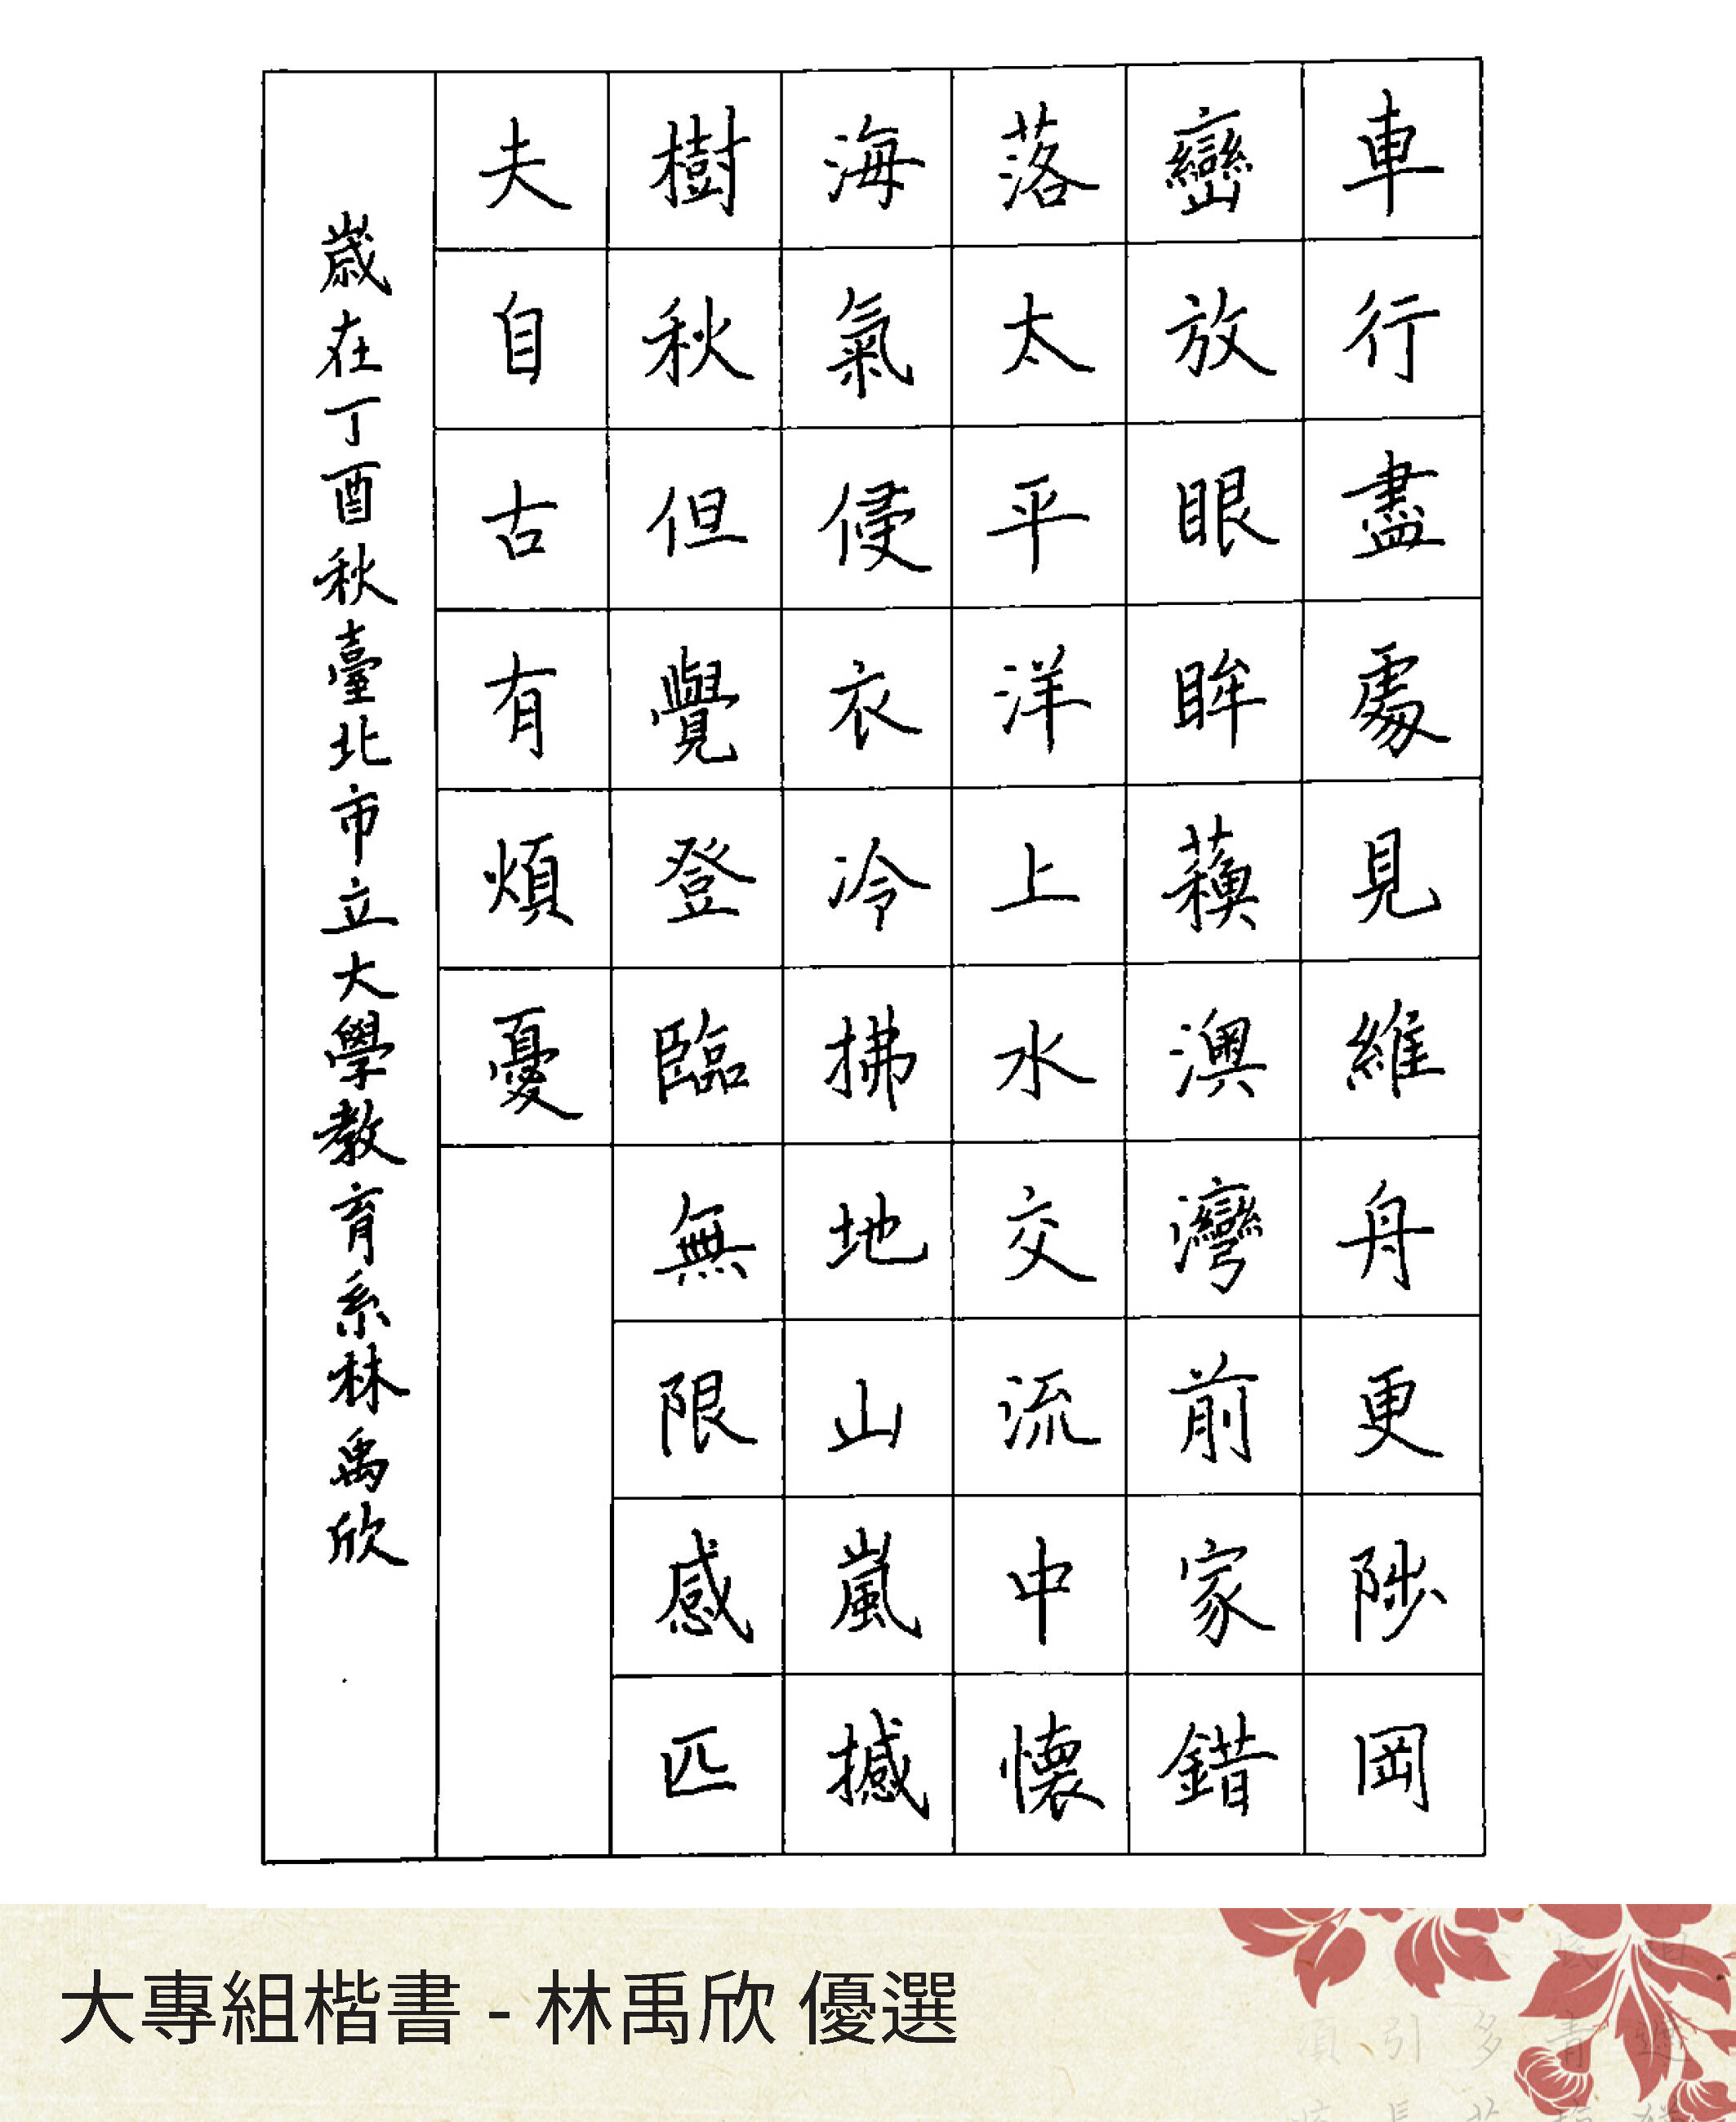 車行盡處見維舟更陟岡
巒放眼眸蘓澳灣前家錯
落太平洋上水交流中懷
海氣侵衣冷拂地山嵐撼
樹秋但覺登臨無限感匹
夫自古有煩憂
歲在丁酉秋臺北市立大學教育系林禹欣
大專組楷書 - 林禹欣 優選